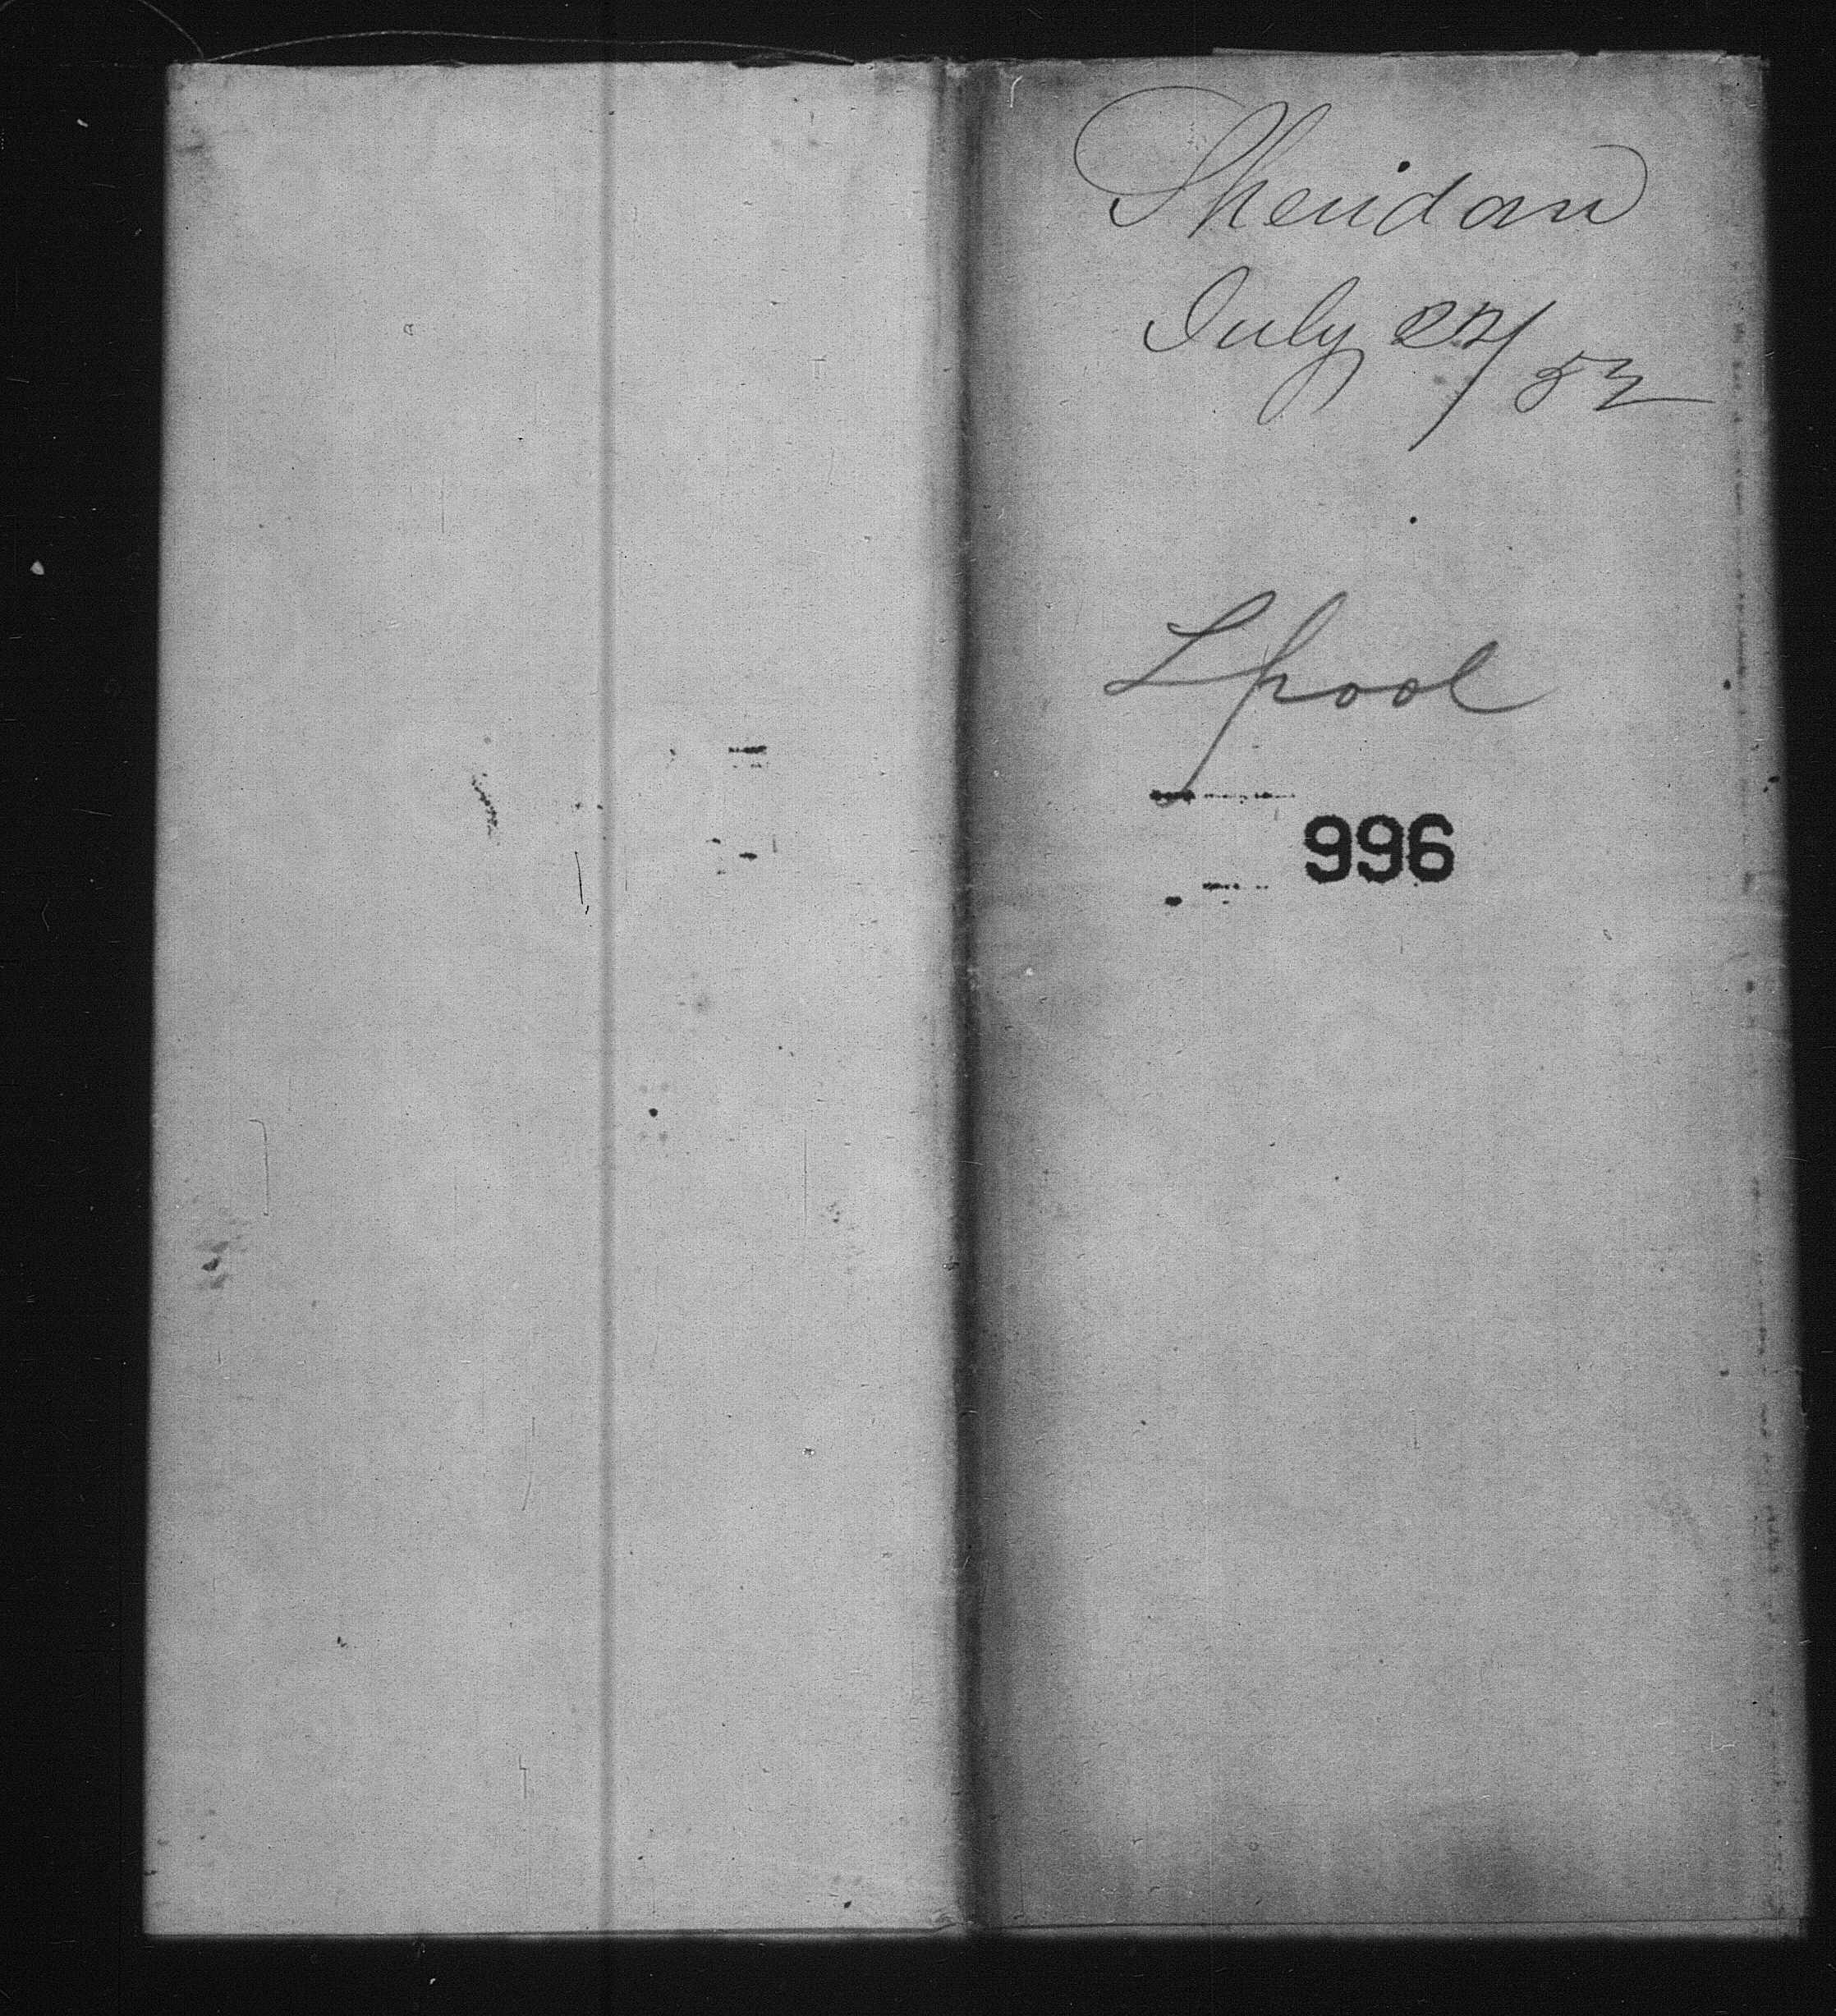 Sheridan
July 27/53
Lpool
996